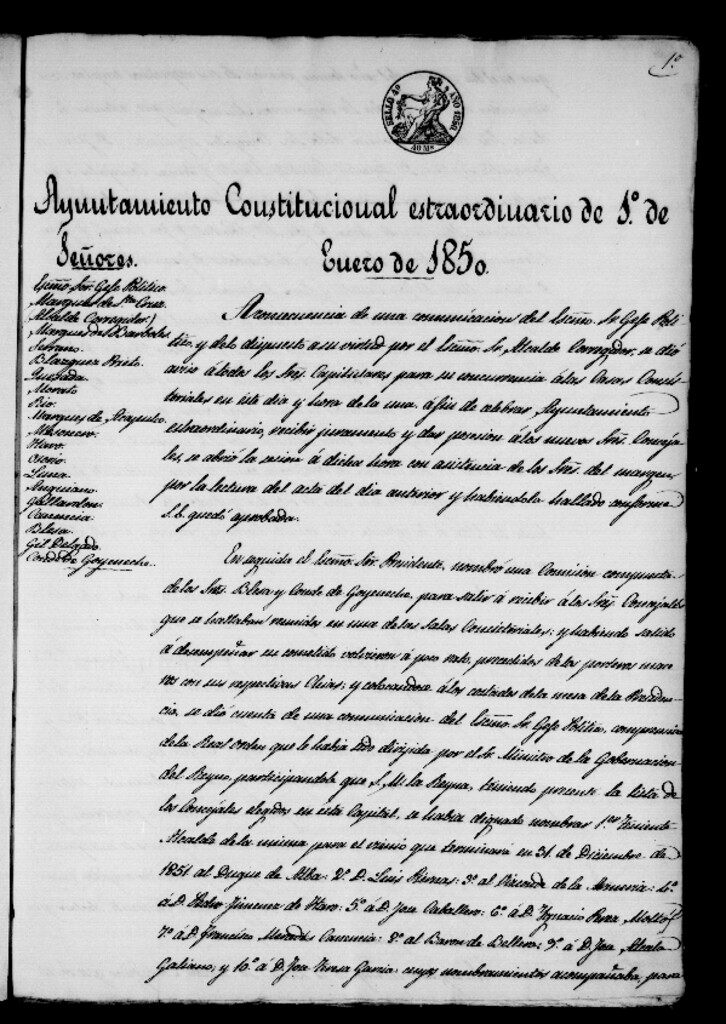 1º
SELLO 4º AÑO 1850
40 Ms
Ayuntamiento Constitucional estraordinario de 1º de
Enero de 1850.
Señores.
Escmo Sor Gefe Politico
Marques de Sta Cruz
(Alcalde Corregidor)
Marques de
Serrano
Blazquez Prieto
Quesada
Morato
Rio
Marques de Acapulco
Mesonero
Haro
Osorio
Luna
Anguiano
Carencia
Blesa
Gil Delgado
Conde de Goyeneche.
A consecuencia de una comunicacion del Escmo. Sr. Gefe Poli
tico, y de lo dispuesto a su virtud por el Escmo. Sr. Alcalde Corregidor, se dió
aviso á todos los Sres. Capitulares para su concurrencia á las Casas Consis
toriales en este dia y hora de la una, á fin de celebrar Ayuntamiento
estraordinario, recibir juramento y dar posesion á los nuevos Sres. Conceja
les, se abrió la sesion á dicha hora con asistencia de los Sres. del margen,
por la lectura del acta del dia anterior y habiendola hallado conforme
S.E. quedó aprobada.
En seguida el Escmo. Sor. Presidente, nombró una Comision compuesta
de los Sres. Blesa y Conde de Goyeneche, para salir á recibir á los Sres. Concejales
que se hallaban reunidos en una de las Salas Consistoriales; y habiendo salido
á desempeñar su cometido volvieron á poco rato, precedidos de los porteros mace
ros con sus respectivas; y colocandose á los costados de la mesa de la Presiden
cia, se dió cuenta de una comunicacion del Escmo. Sr. Gefe Politico, comprensiva
de la Real orden que le habia sido dirigida por el Sr. Ministro de la Gobernacion
del Reyno, participandole que S.M. la Reyna, teniendo presente la lista de
los Concejales elegidos en esta Capital, se habia dignado nombrar 1er Teniente
Alcalde de la misma para el vienio que terminará en 31 de Diciembre de
1851 al Duque de Alba: 2º D. Luis Piernas: 3º al Vizconde de la Armeria: 4º
á D. Pedro Jimenez de Haro: 5º á D. Jose Caballero: 6º á D. Ygnacio Perez Moltó:
7º á D. Francisco Mercado Carencia: 8º al Baron de Bellera: 9º á D. Jose Alcala
Galiano, y 10º á D. Jose Teresa Garcia: cuyos nombramientos acompañaba, para